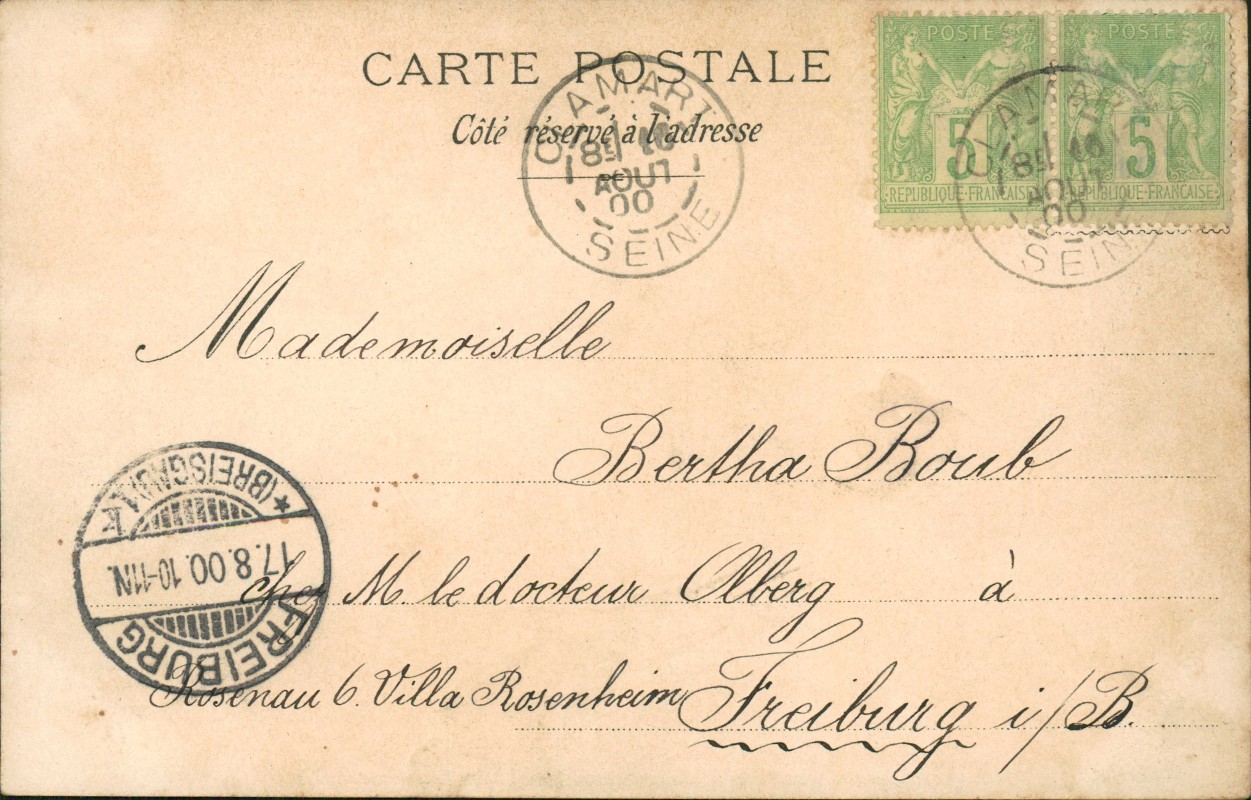 CARTE POSTALE
Côté réservé à l'adresse
POSTE
5
REPUBLIQUE FRANCAISE
POSTE
5
REPUBLIQUE FRANCAISE
CLAMART
16
AOUT
00
SEINE
CLAMART
16
AOUT
00
SEINE
Mademoiselle
Bertha Boub
chez M. le docteur Olberg à
Rosenau 6. Villa Rosenheim Freiburg i/B.
FREIBURG
17.8.00.10-11N.
* (BREISGAU) 1 k